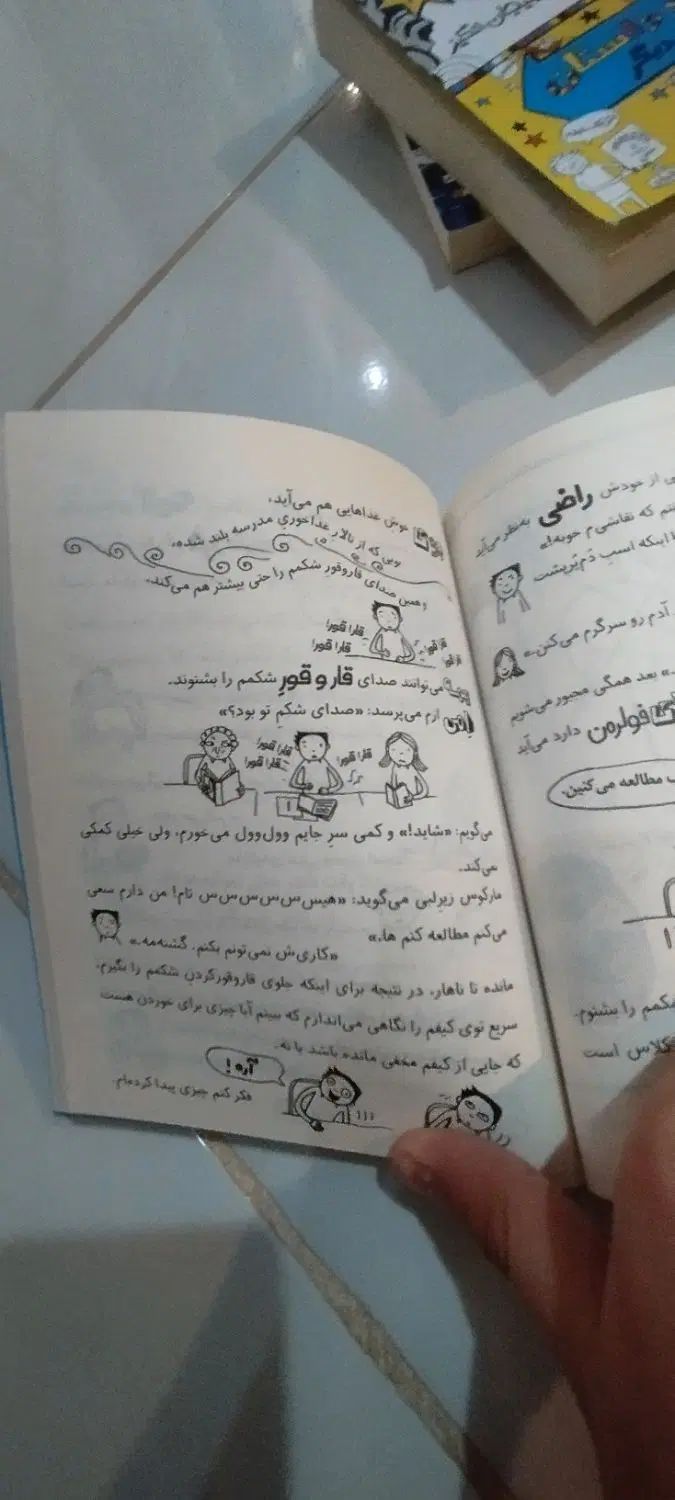 داستان
دیگر
خوش غذاهایی هم می‌آید،
که از تالار غذاخوریِ مدرسه بلند شده،
و همین صدای قاروقورِ شکمم را حتی بیشتر هم می‌کند.
قارا قورا
قارا قورا
می‌توانند صدای قار و قورِ شکمم را بشنوند.
ازم می‌پرسد: «صدای شکمِ تو بود؟»
قارا قورا
قارا قورا
قارا قورا
می‌گویم: «شاید!» و کمی سرِ جایم وول‌وول می‌خورم، ولی خیلی کمکی
نمی‌کند.
مارکوس زیرلبی می‌گوید: «هیس‌س‌س‌س‌س‌س تام! من دارم سعی
می‌کنم مطالعه کنم ها.»
«کاری‌ش نمی‌تونم بکنم. گشنه‌مه.»
مانده تا ناهار، در نتیجه برای اینکه جلوی قاروقورکردنِ شکمم را بگیرم،
سریع توی کیفم را نگاهی می‌اندازم که ببینم آیا چیزی برای خوردن هست
که جایی از کیفم مخفی مانده باشد یا نه.
آره!
فکر کنم چیزی پیدا کرده‌ام.
از خودش راضی به‌نظر می‌آید
که نقاشی‌م خوبه!»
اینکه اسبِ دُم‌پَریشت
آدم رو سرگرم می‌کنن.»
بعد همگی مجبور می‌شویم
فولرمن دارد می‌آید
مطالعه می‌کنین.
شکمم را بشنوم.
کلاس است